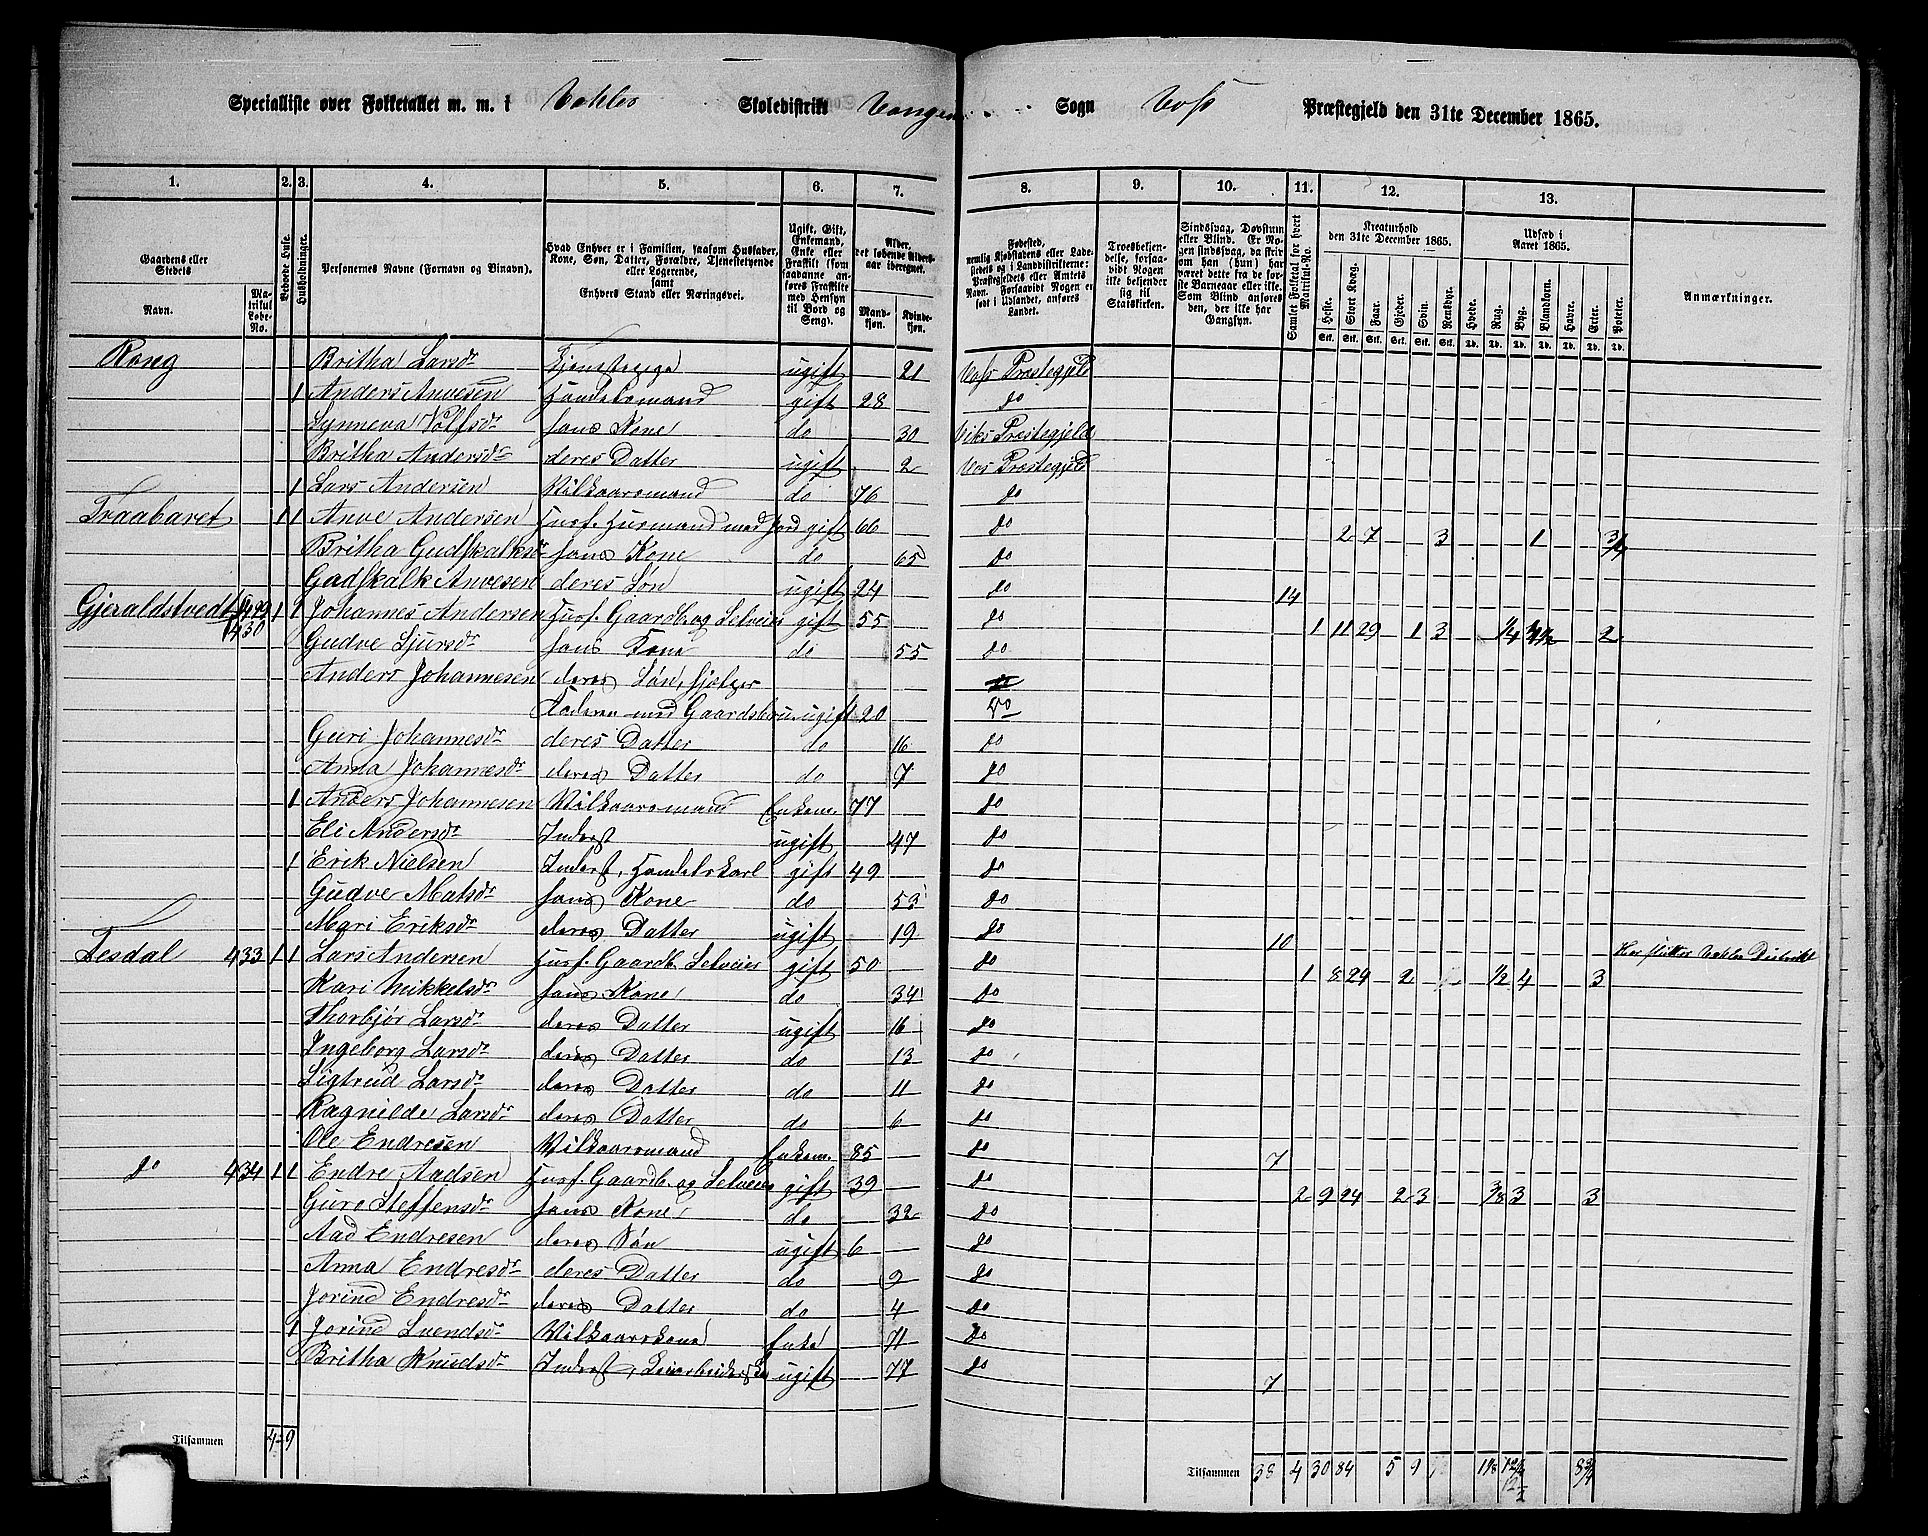 Specialliste over Folketallet m. m. i Vohler Skoledistrikt Vangen Sogn Voss Præstegjeld den 31te December 1865.
1. 2. 3. 4. 5. 6. 7. 8. 9. 10. 11. 12. 13.
Gaardens eller Stedets
Navn. Matrikul Løbe-No.
Beboede Huse.
Husholdninger.
Personernes Navne (Fornavn og Binavn).
Hvad Enhver er i Familien, saasom Husfader, Kone, Søn, Datter, Forældre, Tjenestetyende eller Logerende, samt Enhvers Stand eller Næringsvei.
Ugift, Gift, Enkemand, Enke eller Fraskilt (som saadanne anføres Fraskilte med Hensyn til Bord og Seng).
Alder, det løbende Alders-aar iberegnet.
Mandkjøn. Kvindekjøn.
Fødested, nemlig Kjøbstadens eller Ladestedets og i Landdistrikterne: Præstegjeldets eller Amtets Navn. Forsaavidt Nogen er født i Udlandet, anføres Landet.
Troesbekjendelse, forsaavidt Nogen ikke bekjender sig til Statskirken.
Sindssvag, Døvstum eller Blind. Er Nogen sindssvag, da skrives om han (hun) har været dette fra de første Barneaar eller ikke. Som Blind anføres den, der ikke har Gangsyn.
Samlet Folketal for hvert Matrikul-No.
Kreaturhold den 31te December 1865.
Heste. Stort Kvæg. Faar. Gjeder. Svin. Rensdyr.
Udsæd i Aaret 1865.
Hvede. Rug. Byg. Blandkorn. Havre. Erter. Poteter.
Anmærkninger.
Rong Britha Larsdr Tjenestepige ugift 21 Voss Præstegjeld
1 Anders Anvesen Handelsmand gift 28 do
Synneva Rolfsdr hans Kone do 30 Viks Præstegjeld
Britha Andersdr deres Datter ugift 2 Vos Præstegjeld
1 Lars Andersen Vilkaarsmand do 76 do
Traabaret 1 1 Anve Andersen Husf. Husmand med Jord gift 66 do 2 7 3 1 3/4
Britha Gudskalksdr hans Kone do 65 do
Gudskalk Anvesen deres Søn ugift 24 do 14
Gjeraldstvedt 429 430 1 1 Johannes Andersen Husf. Gaardb. og Selveier gift 55 do 1 11 29 1 3 1/4 2
Gudve Sjursdr hans Kone do 55 do
Anders Johannesen deres Søn, hjelper
Faderen med Gaardsbru. ugift 20 do
Guri Johannesdr deres Datter do 16 do
Anna Johannesdr deres Datter do 7 do
1 Anders Johannesen Vilkaarsmand Enkem. 77 do
Eli Andersdr Inderst ugift 47 do
1 Erik Nielsen Inderst, Handelskarl gift 49 do
Gudve Matsdr hans Kone do 53 do
Mari Eriksdr deres Datter ugift 19 do 10
Tesdal 433 1 1 Lars Andersen Husf. Gaardb. Selveier gift 50 do 1 8 24 2 1/2 4 3 Her slutter Vohler Distrikt
Kari Mikkelsdr hans Kone do 34 do
Thorbjør Larsdr deres Datter ugift 16 do
Ingeborg Larsdr deres Datter do 13 do
Sigtrud Larsdr deres Datter do 11 do
Ragnilde Larsdr deres Datter do 6 do
Ole Endresen Vilkaarsmand Enkem. 85 do 7
do 434 1 1 Endre Aadsen Husf. Gaardb. og Selveier gift 39 do 2 9 24 2 3 3/8 3 3
Guro Steffensdr hans Kone do 32 do
Aad Endresen deres Søn ugift 6 do
Anna Endresdr deres Datter do 9 do
Jorind Endresdr deres Datter do 4 do
1 Jorind Svendsdr Vilkaarskone Enke 71 do
Britha Knudsdr Inderst, ugift 77 do 7
Tilsammen 4 9 Tilsammen 38 4 30 84 5 9 1 1/8 8 3/4